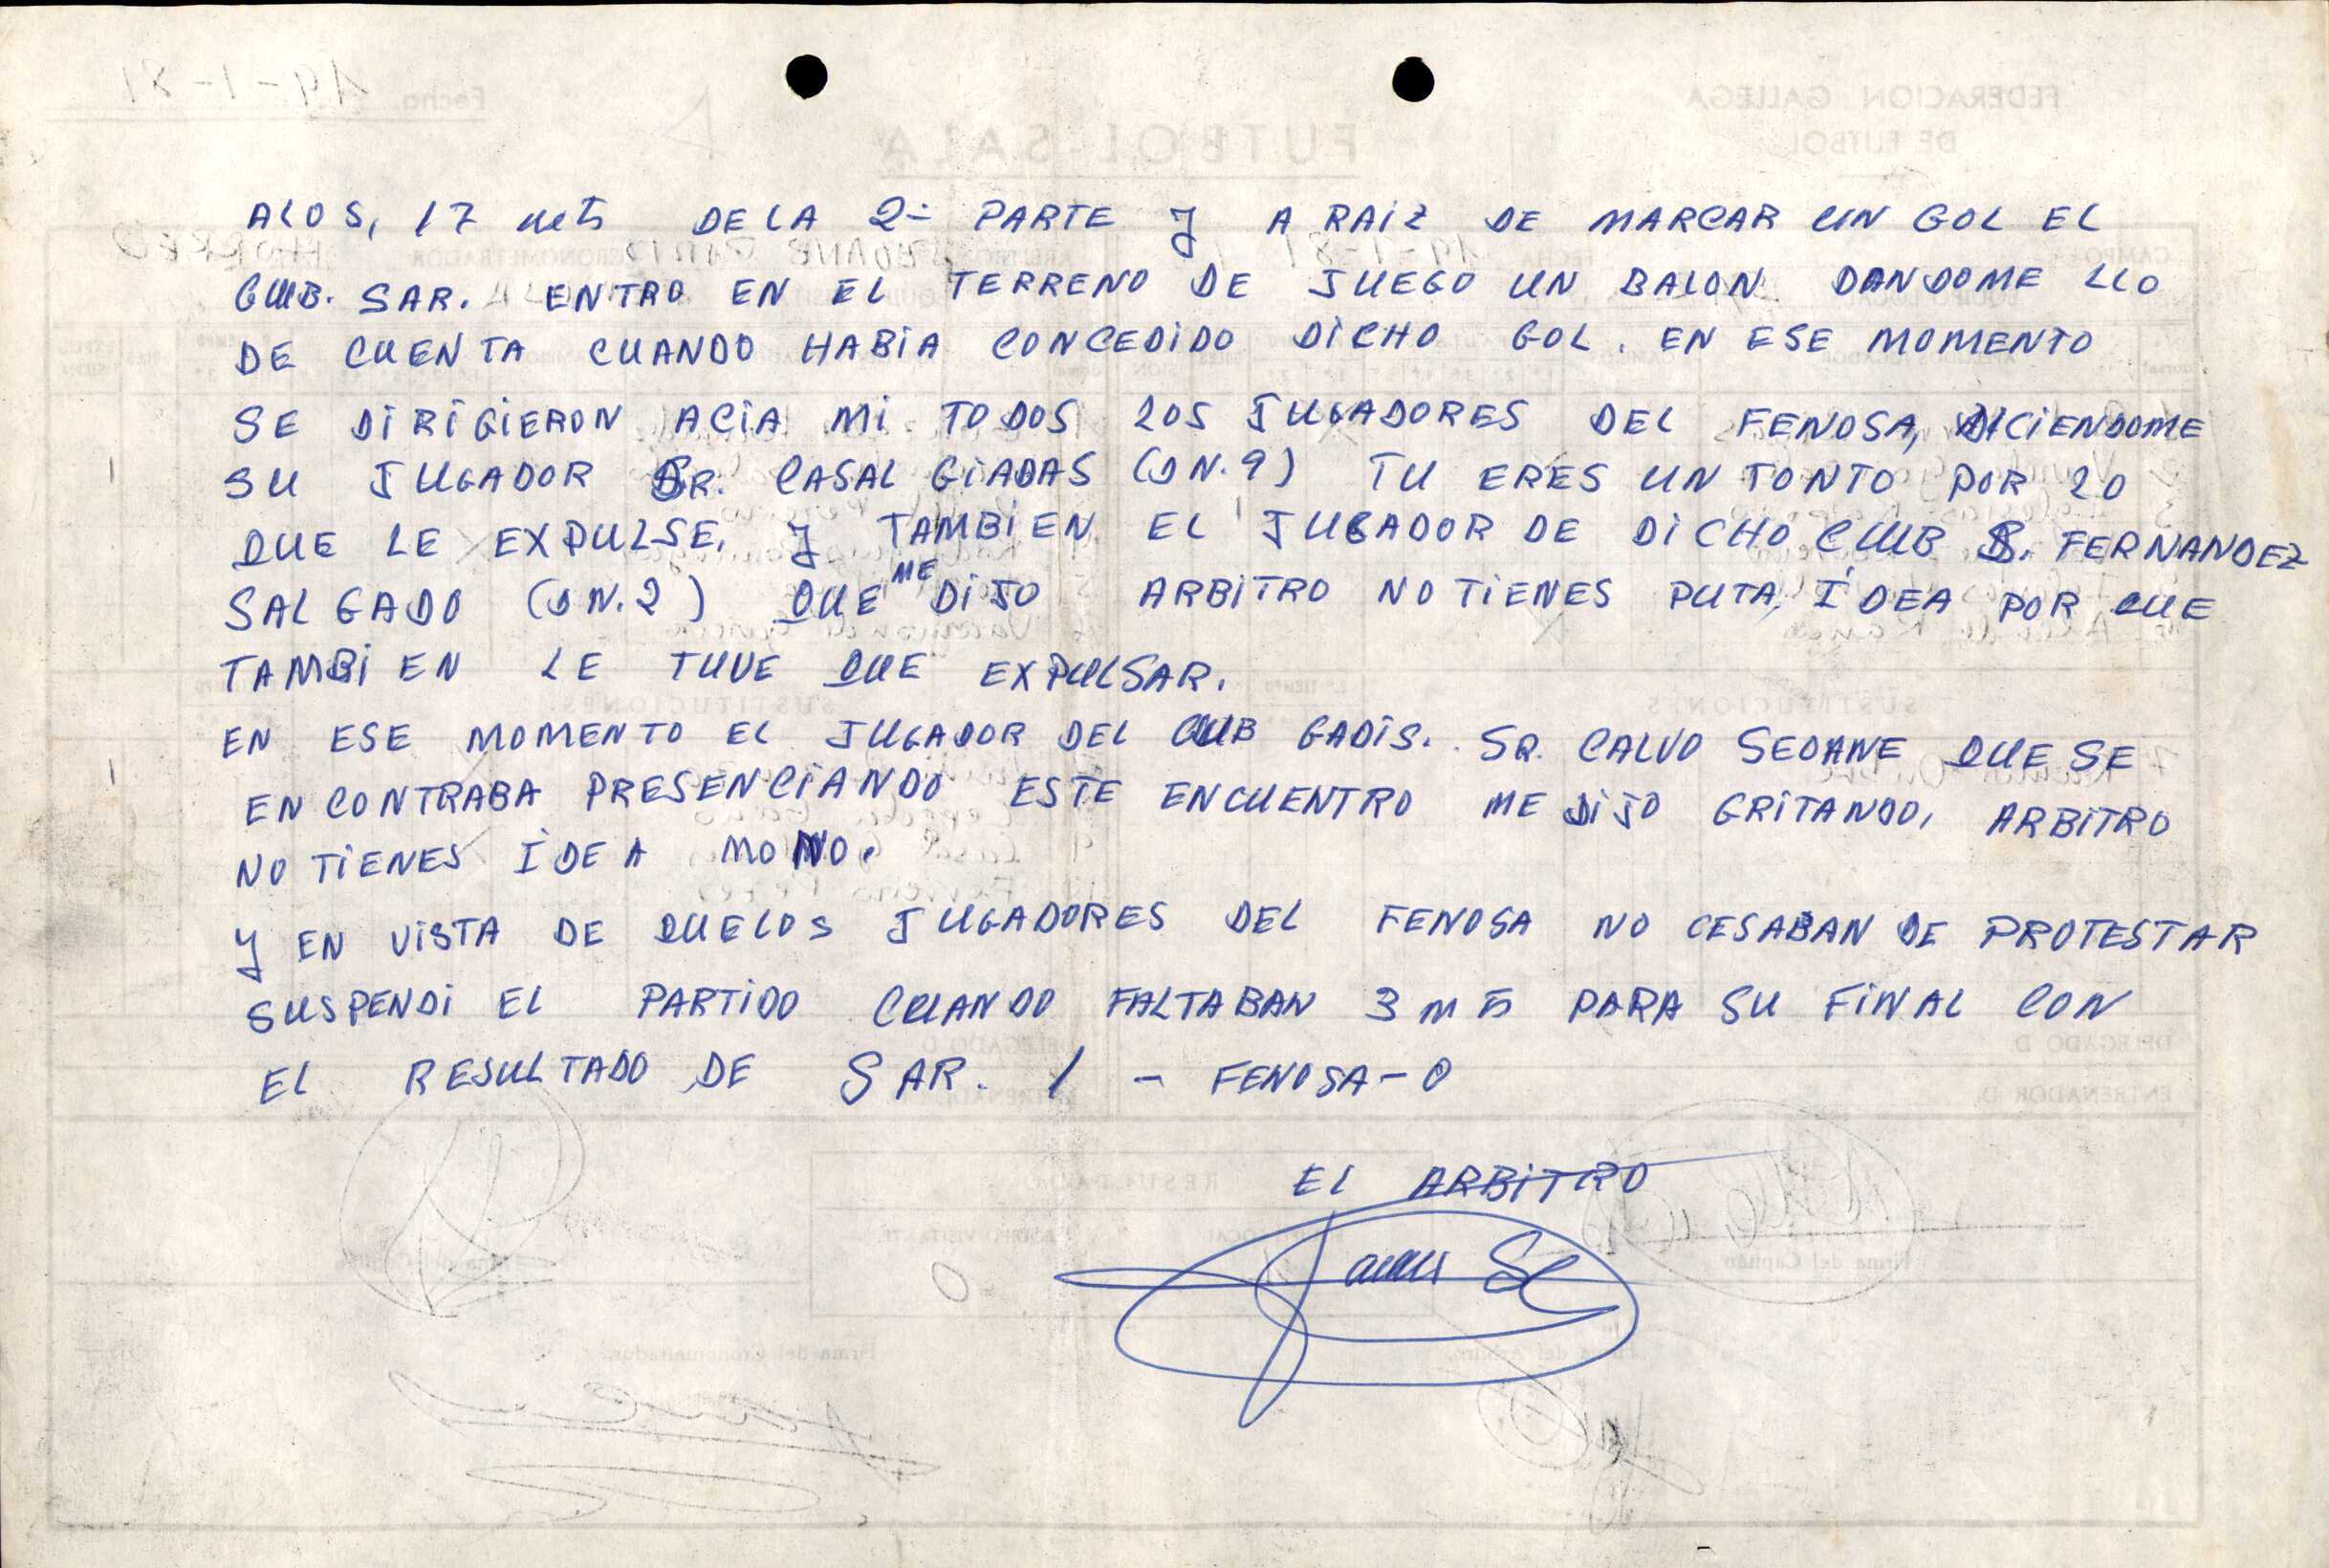 ALOS, 17 mts DE LA 2ª PARTE Y A RAIZ DE MARCAR UN GOL EL
CLUB. SAR. ENTRO EN EL TERRENO DE JUEGO UN BALON DANDOME LLO
DE CUENTA CUANDO HABIA CONCEDIDO DICHO GOL. EN ESE MOMENTO
SE DIRIGIERON ACIA MI TODOS LOS JUGADORES DEL FENOSA, DICIENDOME
SU JUGADOR SR. CASAL GIADAS (D N. 9) TU ERES UN TONTO POR LO
QUE LE EXPULSE, Y TAMBIEN EL JUGADOR DE DICHO CLUB S. FERNANDEZ
SALGADO (D N. 2) QUE ME DIJO ARBITRO NO TIENES PUTA, IDEA POR QUE
TAMBIEN LE TUVE QUE EXPULSAR.
EN ESE MOMENTO EL JUGADOR DEL CLUB GADIS. SR. CALVO SEOANE QUE SE
ENCONTRABA PRESENCIANDO ESTE ENCUENTRO ME DIJO GRITANDO, ARBITRO
NO TIENES IDEA MONO.
Y EN VISTA DE QUE LOS JUGADORES DEL FENOSA NO CESABAN DE PROTESTAR
SUSPENDI EL PARTIDO CUANDO FALTABAN 3 mts PARA SU FINAL CON
EL RESULTADO DE SAR. 1 - FENOSA - 0
EL ARBITRO